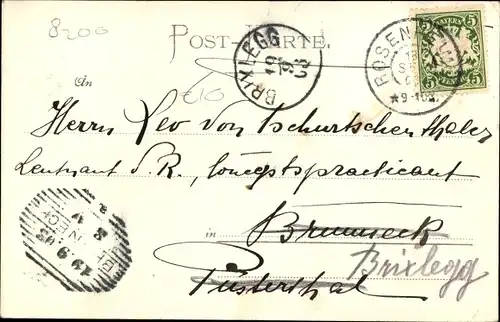 8200
POST-KARTE.
BRIXLEGG
19 9 03
ROSENH
5 BAYERN 5
5 5
★9-10
€10
An
Herrn Leo von Tschurtschenthaler
Leutnant d. R., Concepts practicant
in Bruneck
Pusterthal
Brixlegg
19 9 03